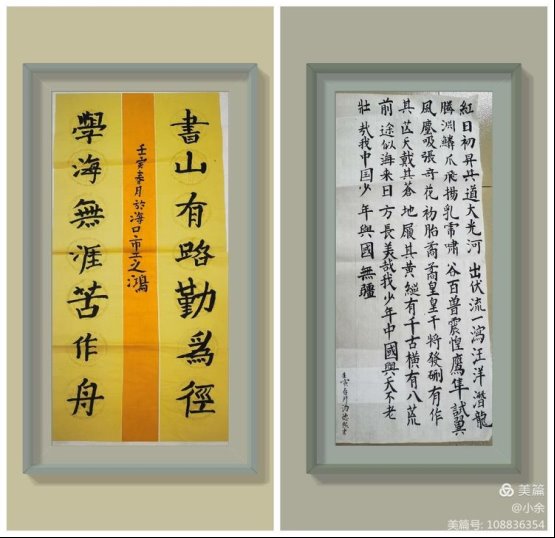 書山有路勤爲徑
壬寅春月於海口
學海無涯苦作舟
紅日初昇其道大光河出伏流一瀉汪洋潛龍
騰淵鱗爪飛揚乳虎嘯谷百兽震惶鷹隼試翼
風塵吸張奇花初胎矞矞皇皇干將發硎有作
其茫天戴其蒼地履其黃縱有千古橫有八荒
前途似海来日方長美哉我少年中國與天不老
壯哉我中国少年與國無疆
壬寅春月
美篇
@小余
美篇号: 108836354